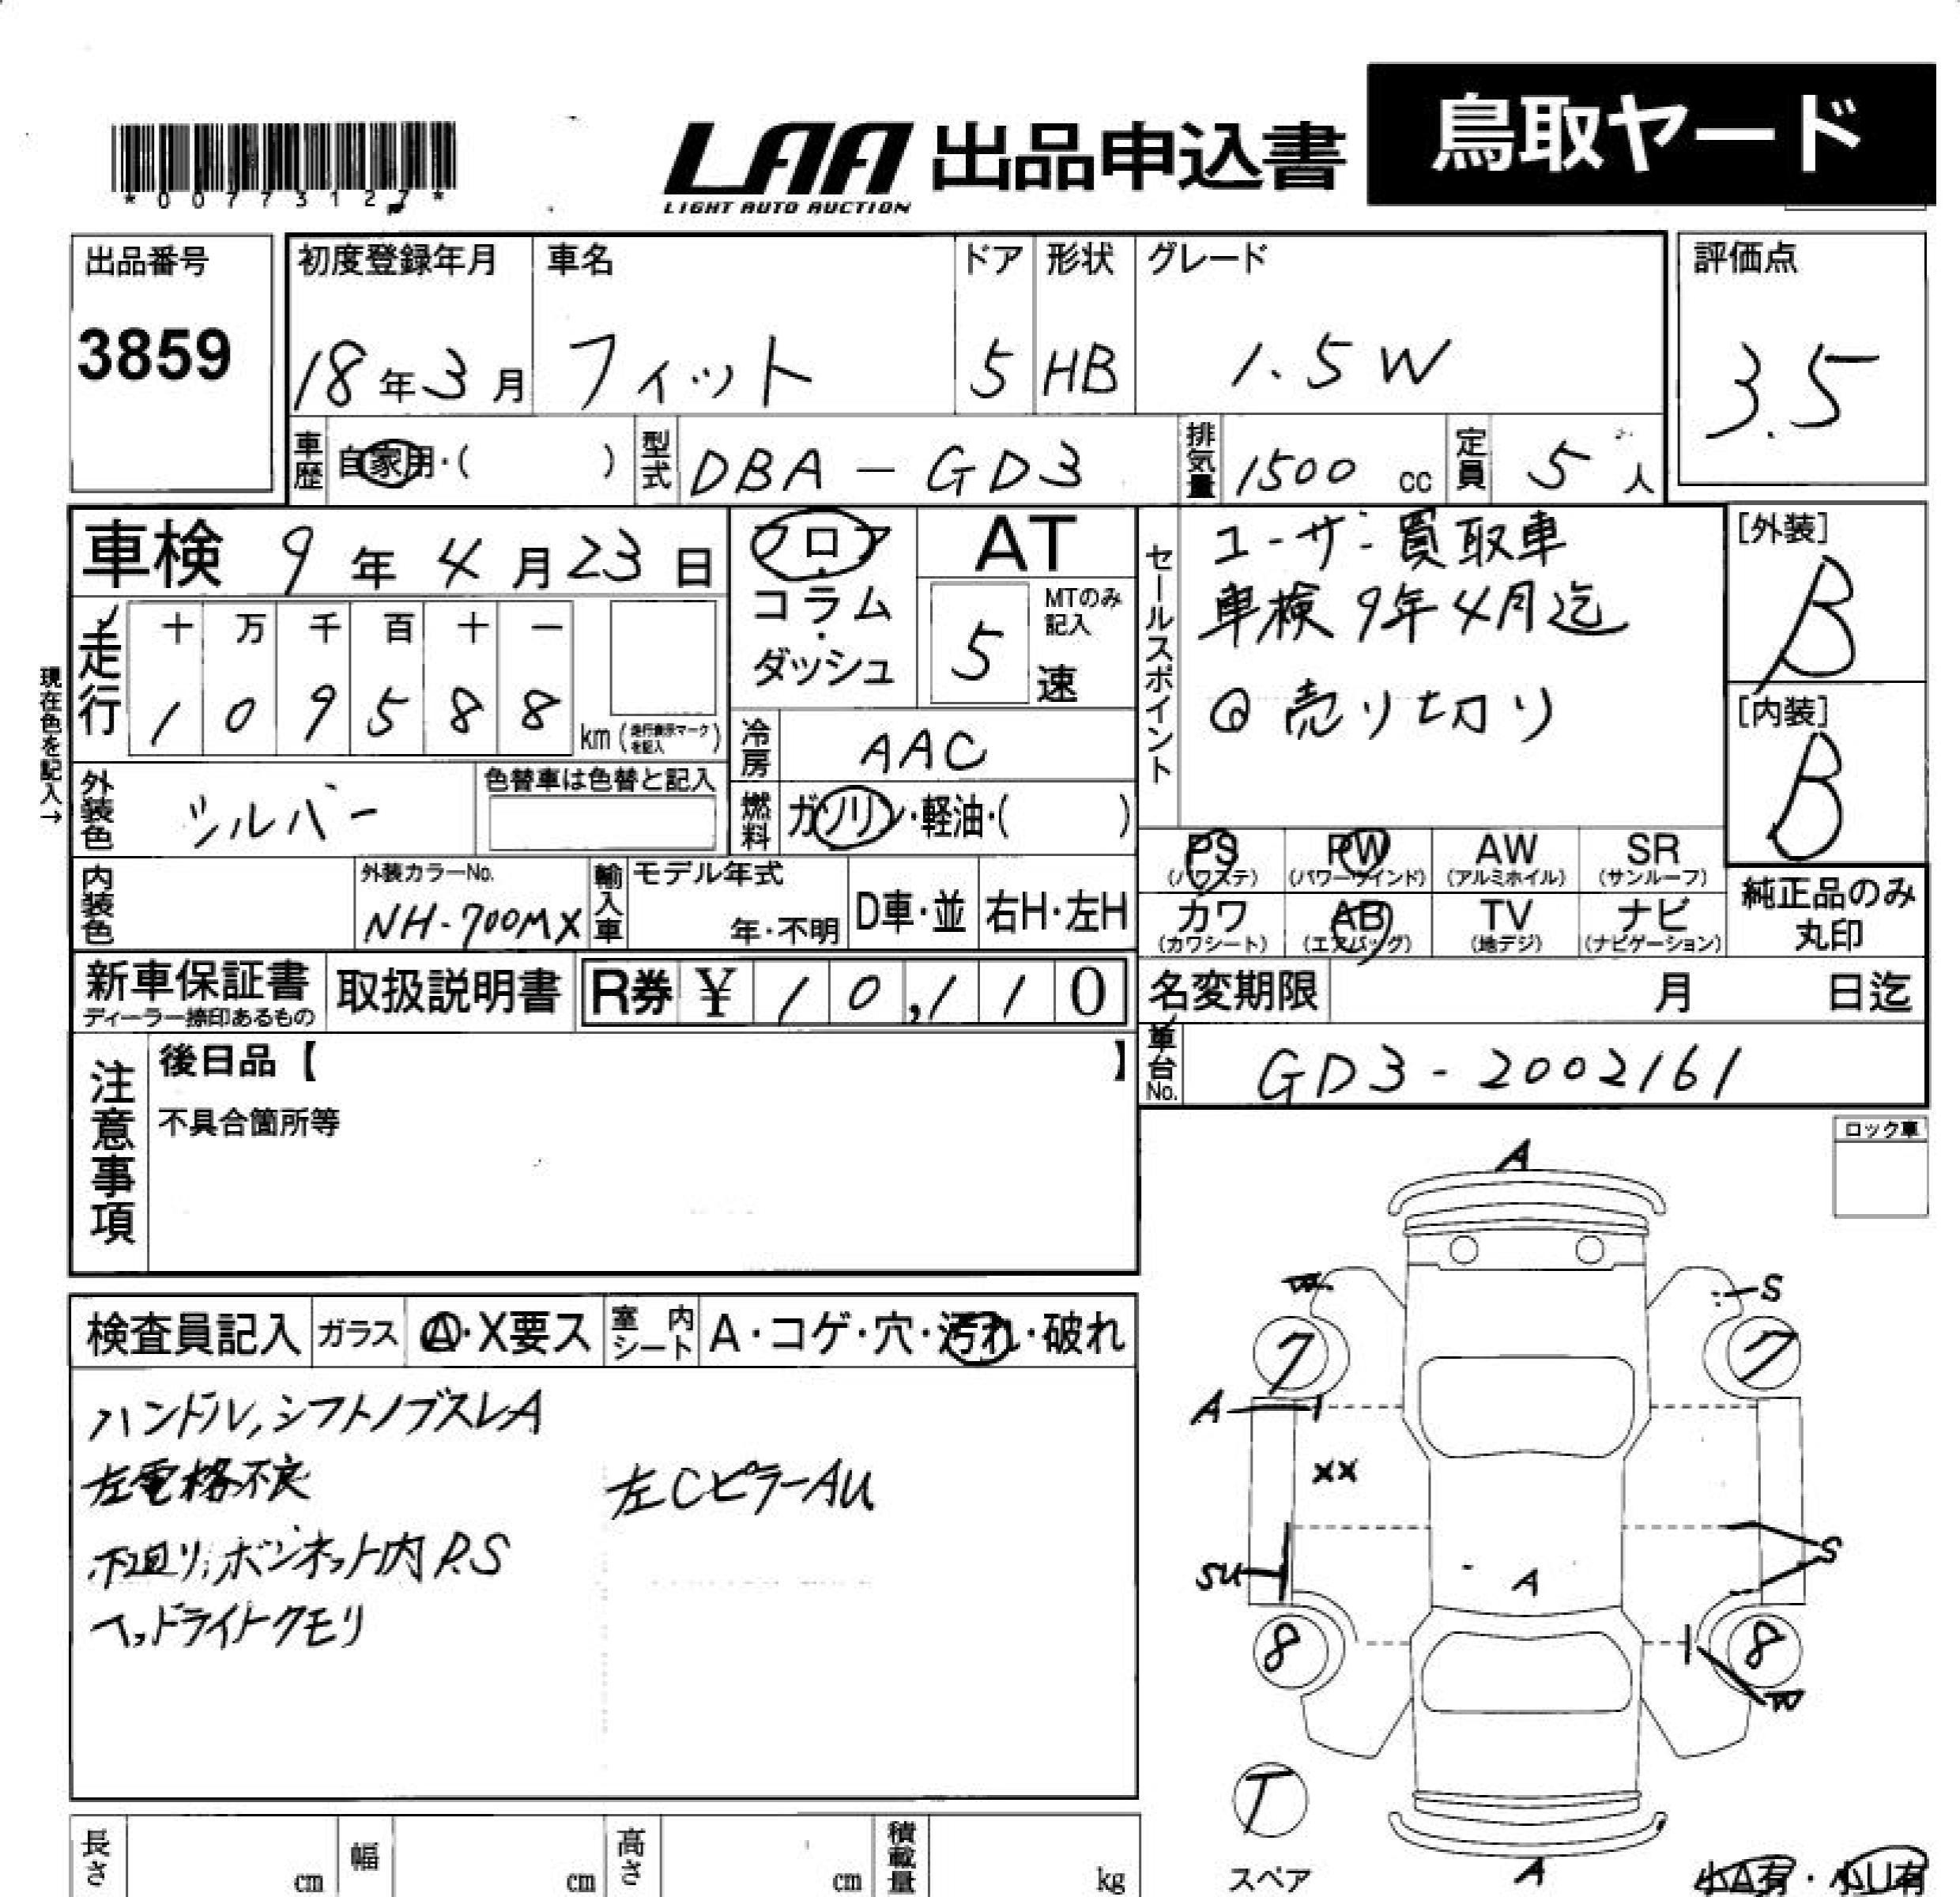 *00773127*
LAA 出品申込書 鳥取ヤード
LIGHT AUTO AUCTION
出品番号
3859
初度登録年月
18年3月
車名
フィット
ドア
5
形状
HB
グレード
1.5W
評価点
3.5
車歴 自家用・( )
型式 DBA-GD3
排気量 1500 cc
定員 5人
車検 9年4月23日
フロア・コラム・ダッシュ
AT
5速
MTのみ記入
セールスポイント
ユーザー買取車
車検9年4月迄
売り切り
[外装]
B
[内装]
B
現在色を記入→
走行
十万千百十一
109588 km(走行表示マークを記入)
冷房 AAC
外装色 シルバー
色替車は色替と記入
燃料 ガソリン・軽油・( )
PS (パワステ)
PW (パワーウインド)
AW (アルミホイル)
SR (サンルーフ)
カワ (カワシート)
AB (エアバッグ)
TV (地デジ)
ナビ (ナビゲーション)
純正品のみ
丸印
内装色
外装カラーNo.
NH-700MX
輸入車
モデル年式
年・不明
D車・並
右H・左H
新車保証書
ディーラー捺印あるもの
取扱説明書
R券 ¥ 10,110
名変期限 月 日迄
車台No. GD3-2002161
注意事項
後日品【 】
不具合箇所等
ロック車
検査員記入
ガラス A・X要ス
室内シート A・コゲ・穴・汚れ・破れ
ハンドル,シフトノブスレA
左電格不良
左CピラーAU
下廻り,ボンネット内P.S
ヘッドライトクモリ
A
W
S
7
7
A
XX
SU
A
S
8
8
W
T
スペア
A
小A有・小U有
長さ cm
幅 cm
高さ cm
積載量 kg